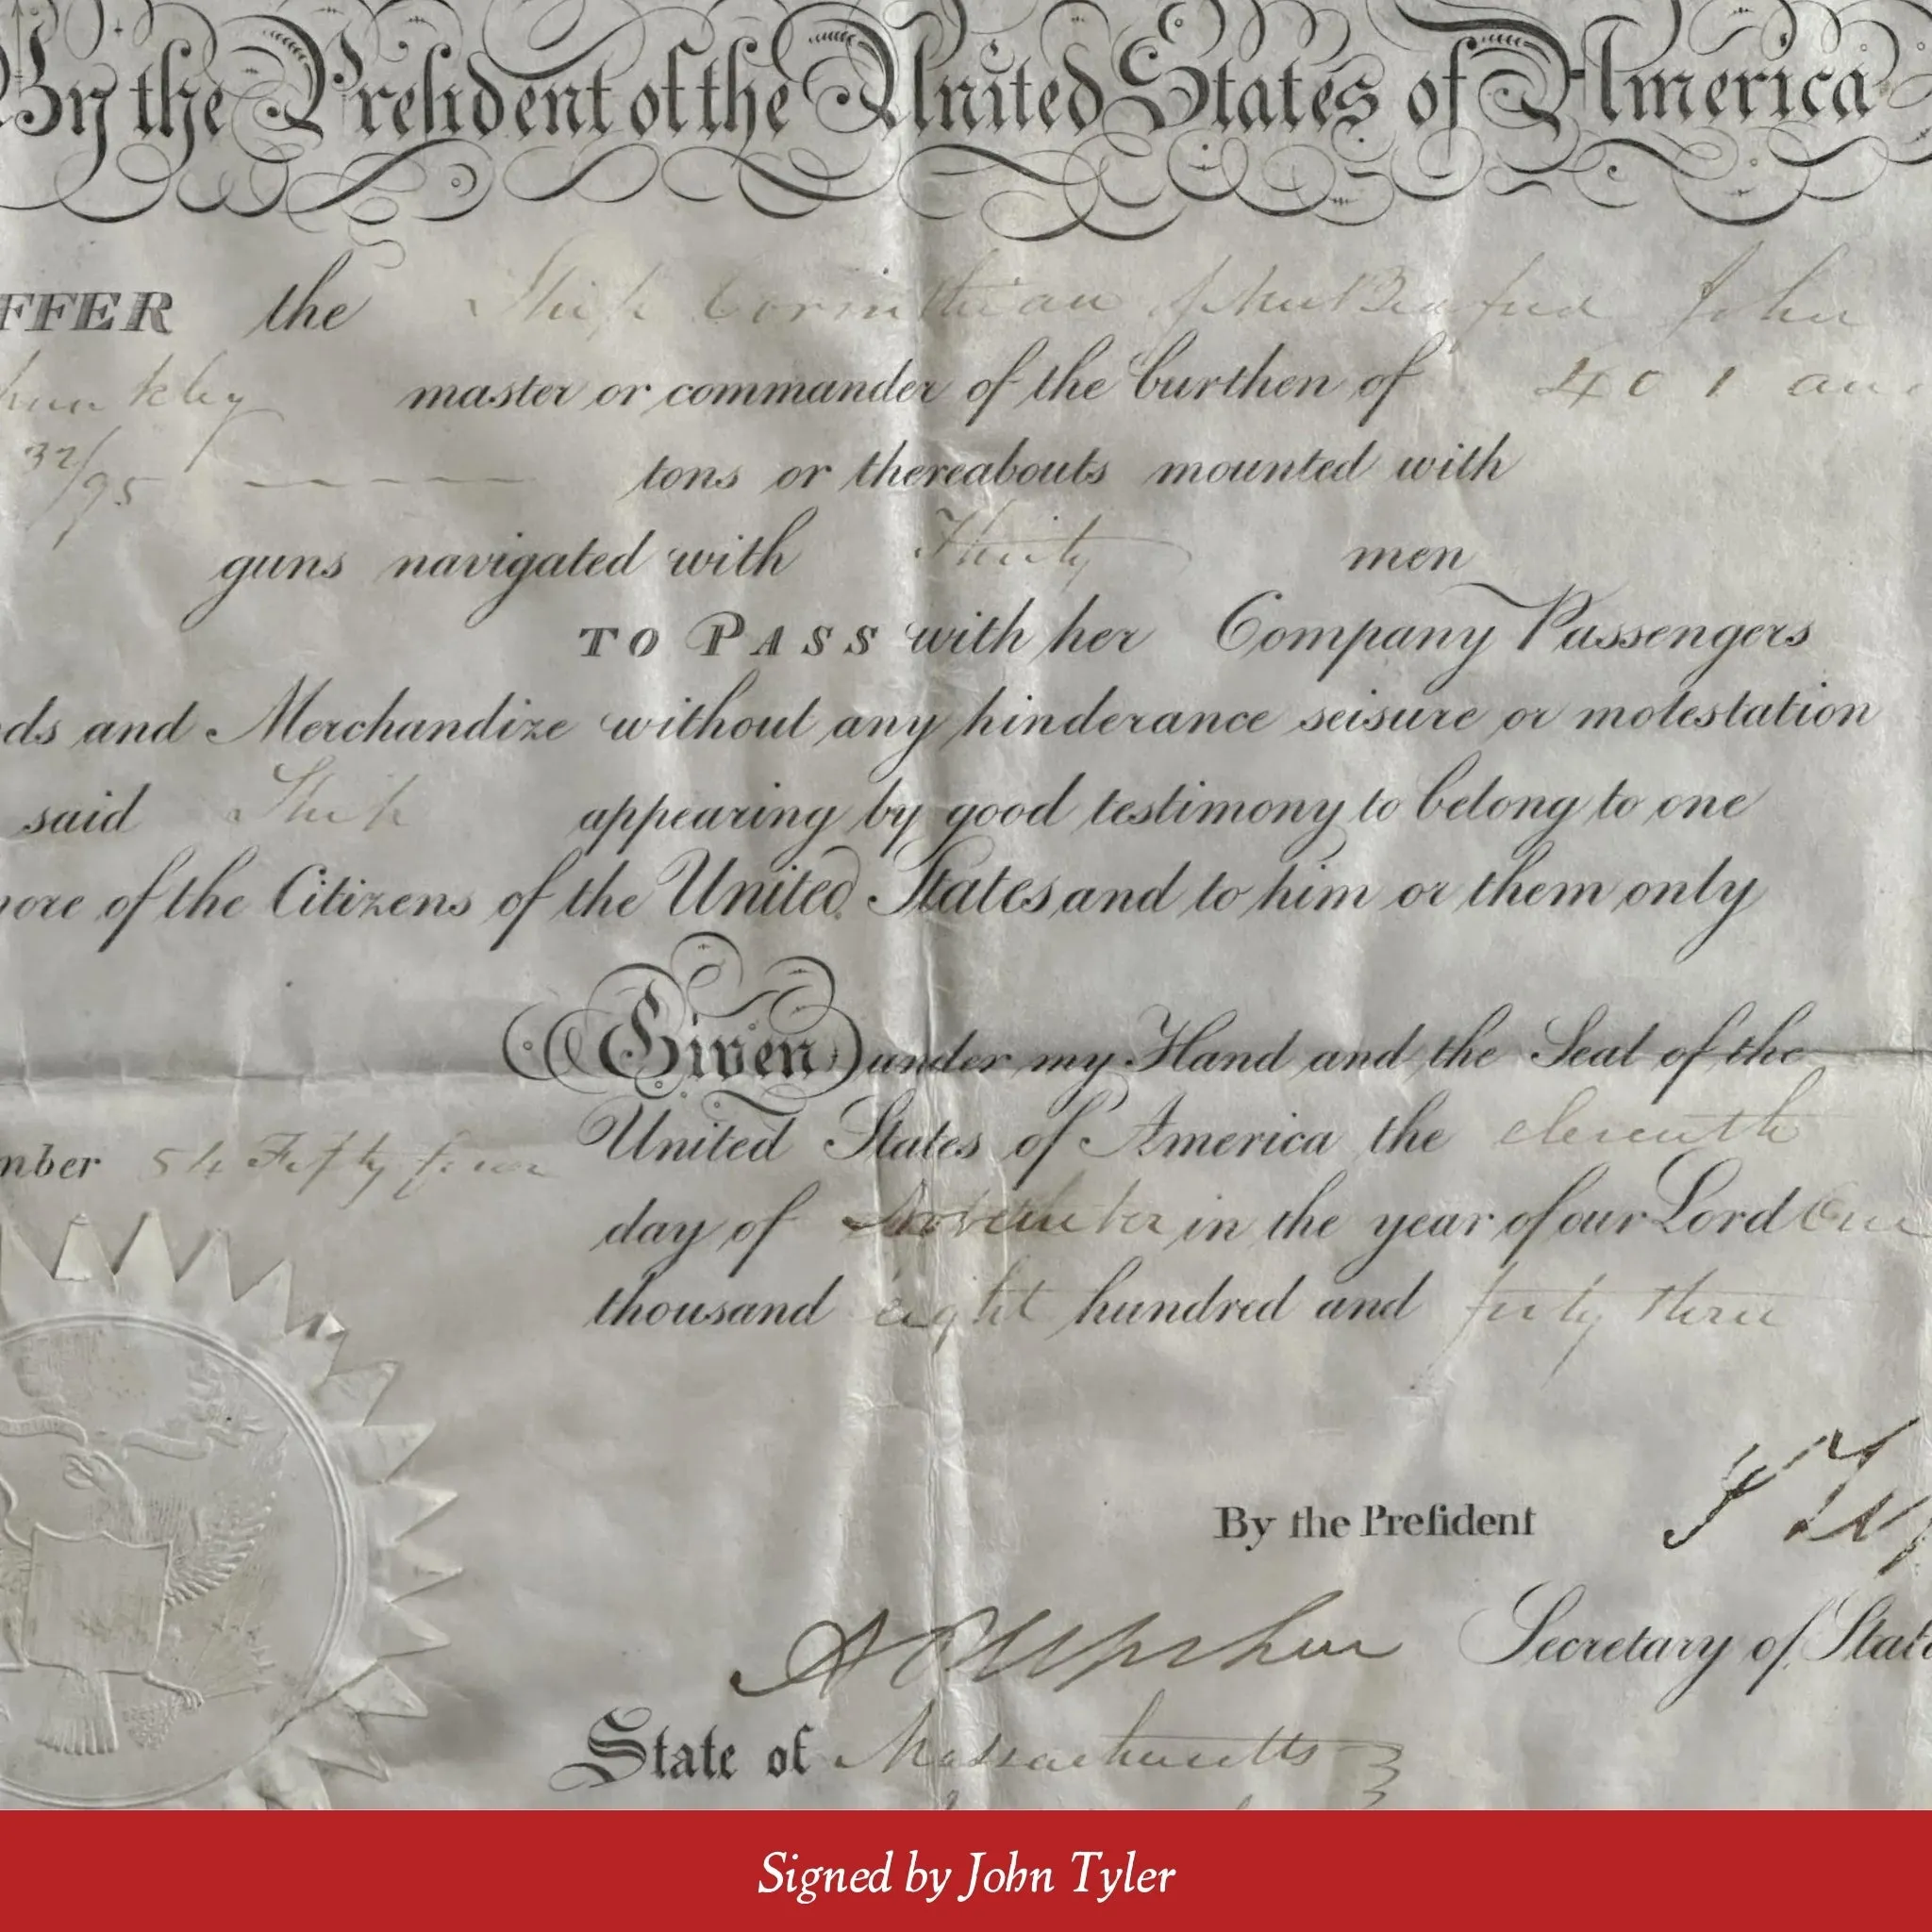 By the President of the United States of America
FFER the Ship Corinthian of New Bedford John
master or commander of the burthen of 401 an
32/95 tons or thereabouts mounted with
guns navigated with Thirty men
TO PASS with her Company Passengers
ds and Merchandize without any hinderance seisure or molestation
said Ship appearing by good testimony to belong to one
more of the Citizens of the United States and to him or them only
Given under my Hand and the Seal of the
United States of America the eleventh
mber 54 Fifty four
day of November in the year of our Lord One
thousand eight hundred and forty three
By the President J Ty
A P Upshur Secretary of State
State of Massachusetts
Signed by John Tyler